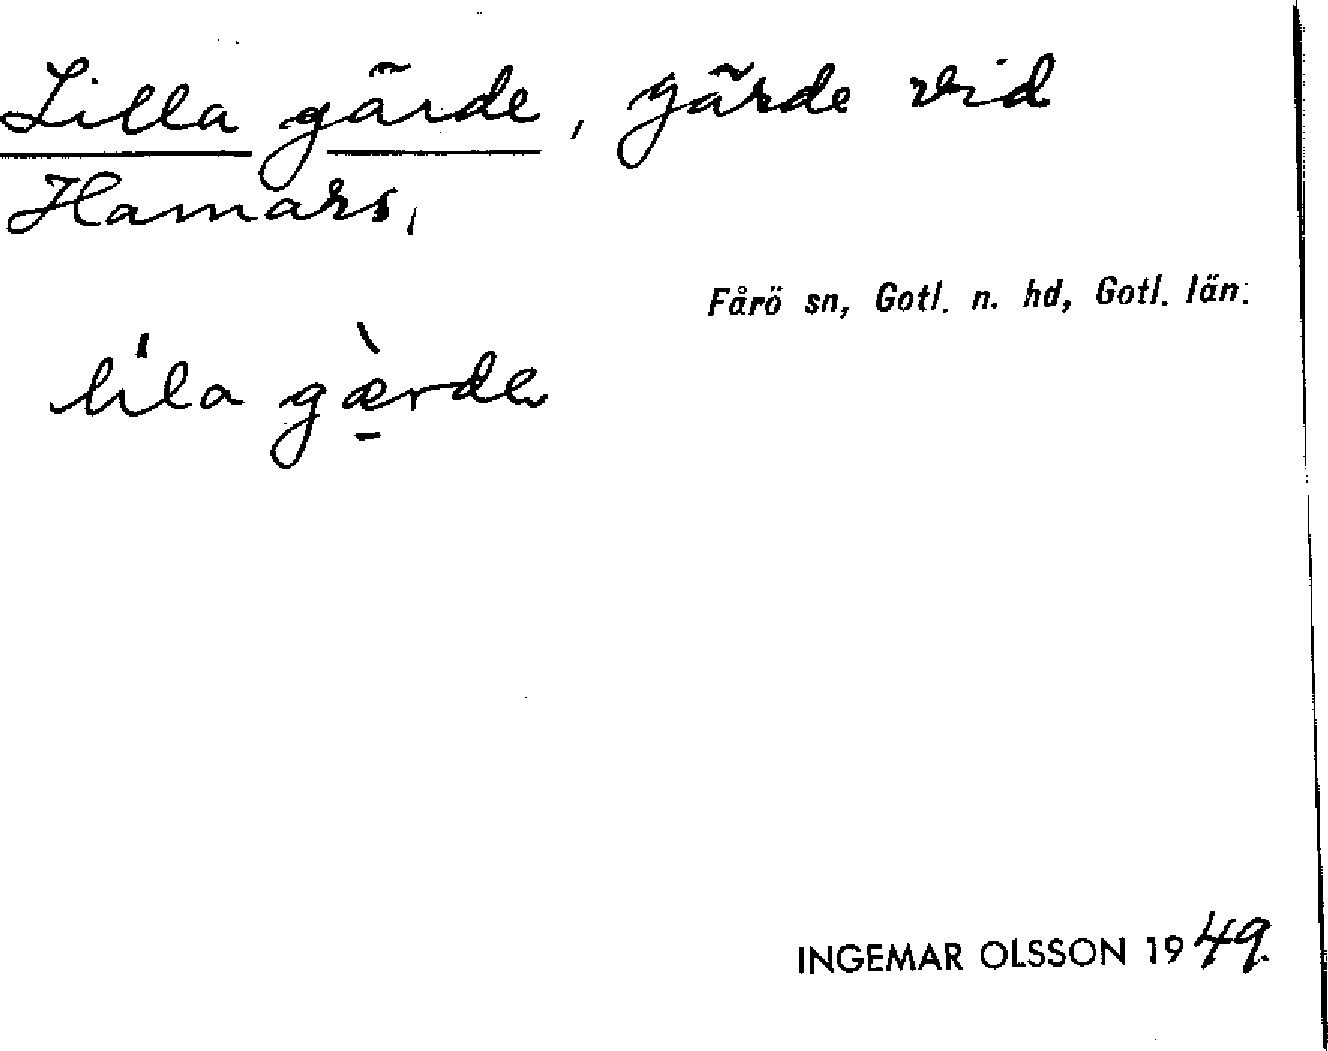 Lilla gärde, gärde vid
Hamars,
Fårö sn, Gotl. n. hd, Gotl. län.
lila gæ̀rde
INGEMAR OLSSON 1949.